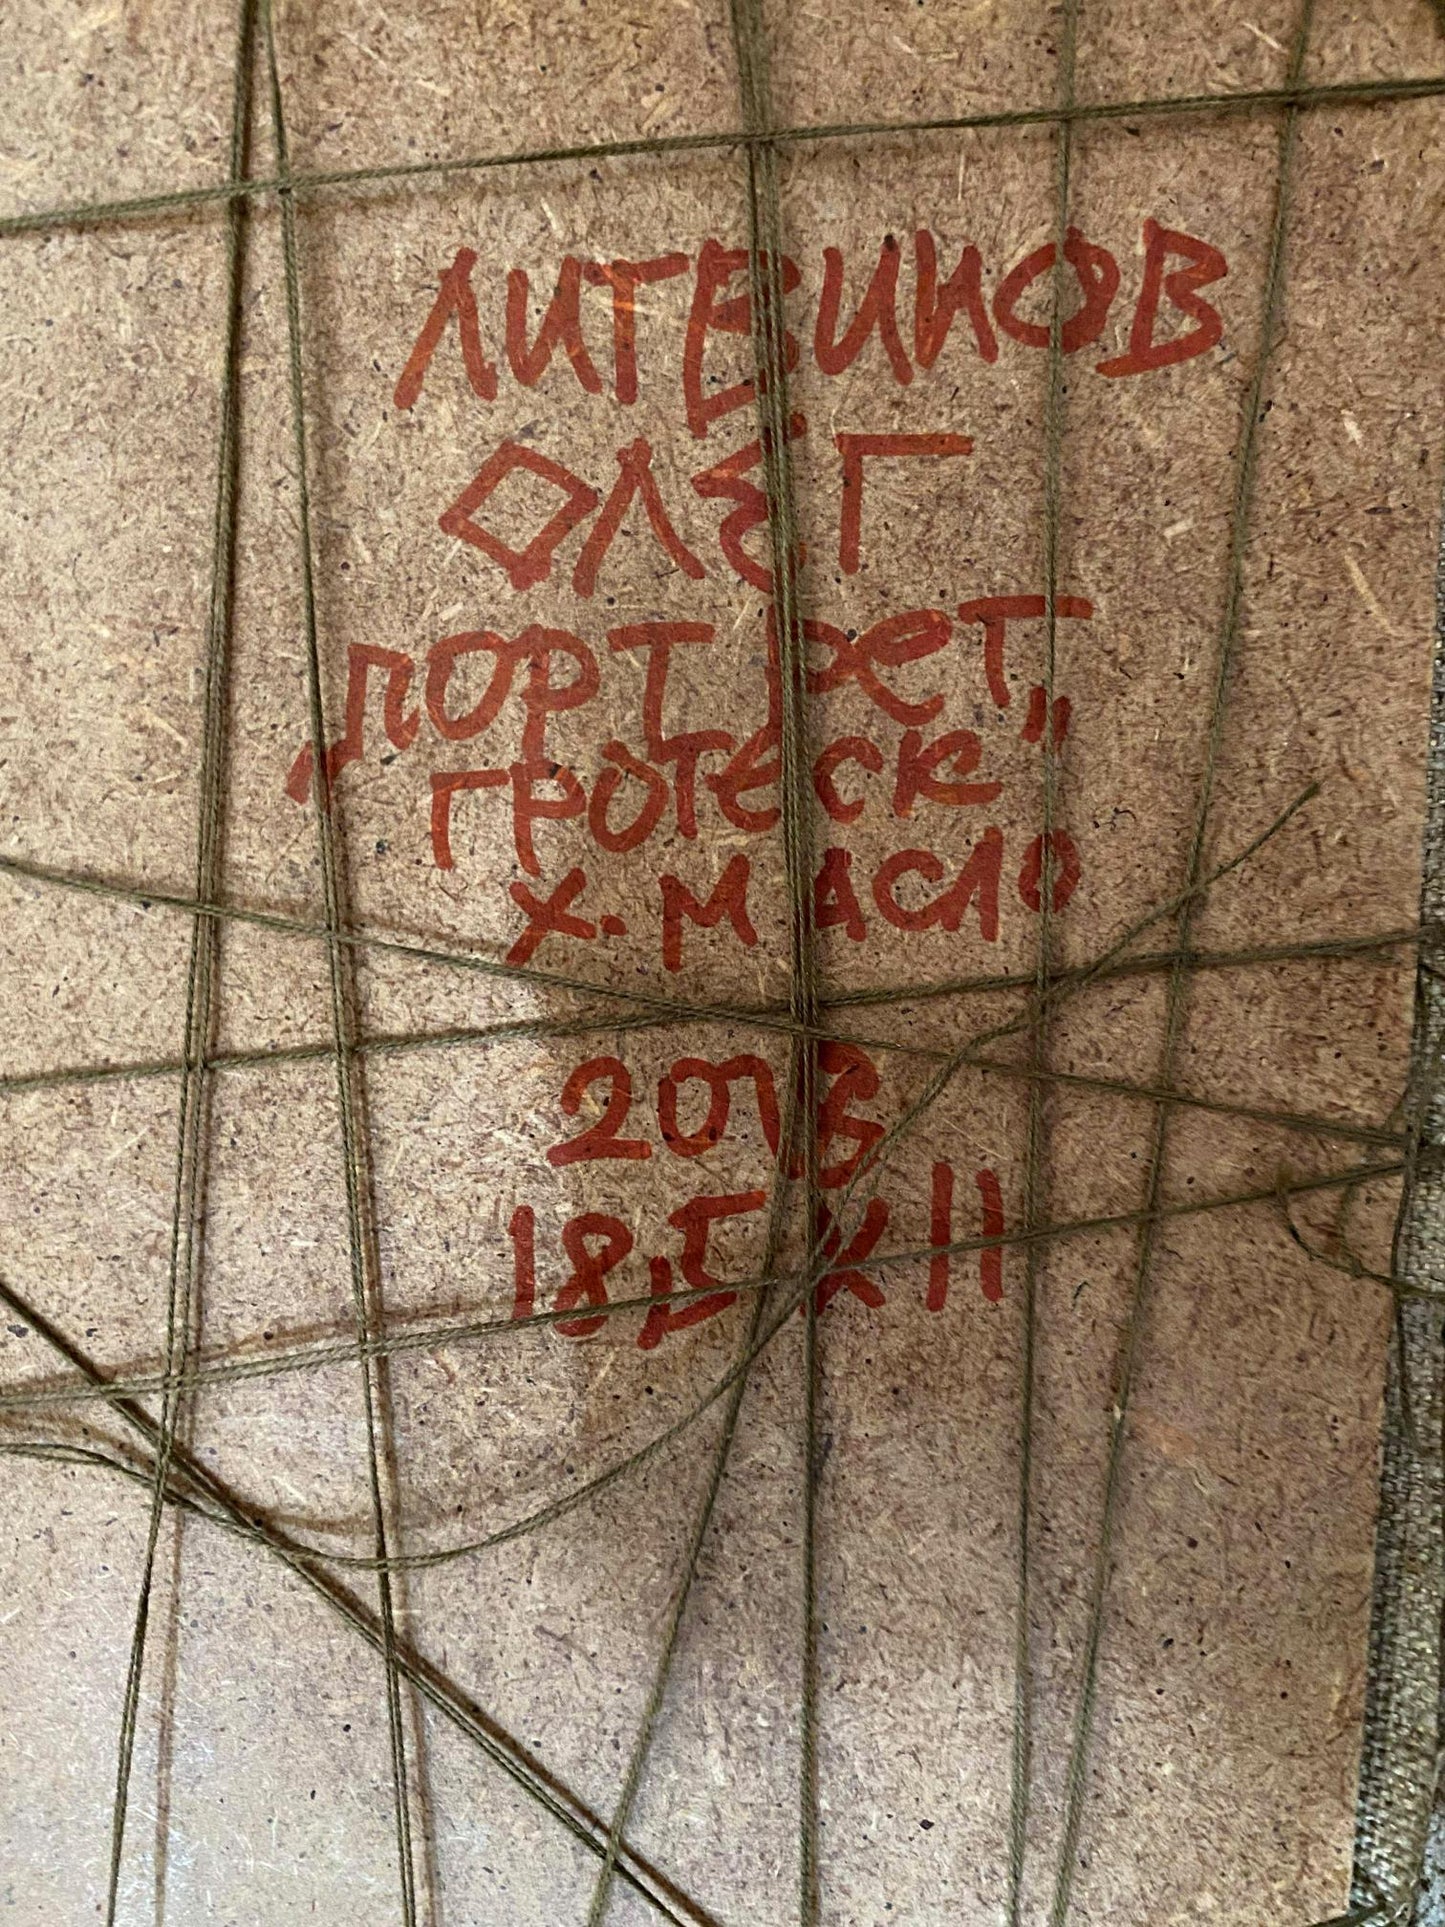 ЛИТВИНОВ
ОЛЕГ
„ПОРТРЕТ
ГРОТЕСК"
Х. МАСЛО
2013
18,5 х 11